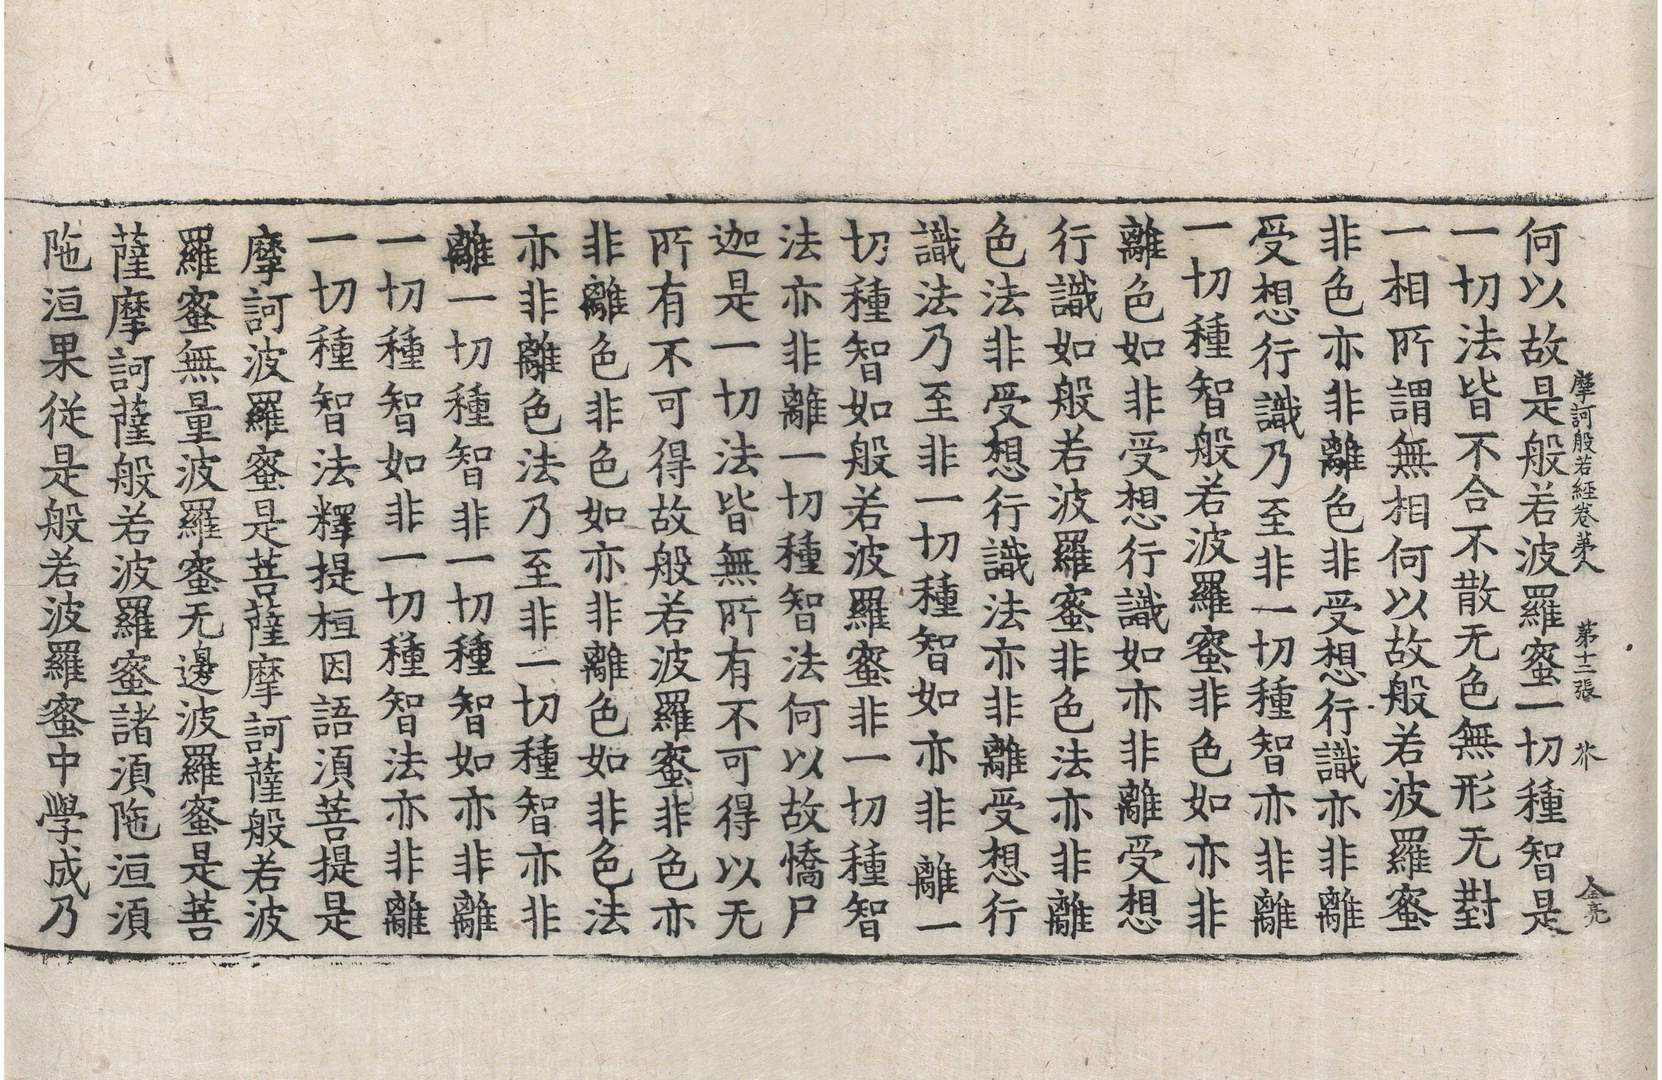 摩訶般若經卷第八 第十二張 芥 金亮
何以故是般若波羅蜜一切種智是
一切法皆不合不散无色無形无對
一相所謂無相何以故般若波羅蜜
非色亦非離色非受想行識亦非離
受想行識乃至非一切種智亦非離
一切種智般若波羅蜜非色如亦非
離色如非受想行識如亦非離受想
行識如般若波羅蜜非色法亦非離
色法非受想行識法亦非離受想行
識法乃至非一切種智如亦非離一
切種智如般若波羅蜜非一切種智
法亦非離一切種智法何以故憍尸
迦是一切法皆無所有不可得以无
所有不可得故般若波羅蜜非色亦
非離色非色如亦非離色如非色法
亦非離色法乃至非一切種智亦非
離一切種智非一切種智如亦非離
一切種智如非一切種智法亦非離
一切種智法釋提桓因語湏菩提是
摩訶波羅蜜是菩薩摩訶薩般若波
羅蜜無量波羅蜜无邊波羅蜜是菩
薩摩訶薩般若波羅蜜諸湏陁洹湏
陁洹果從是般若波羅蜜中學成乃